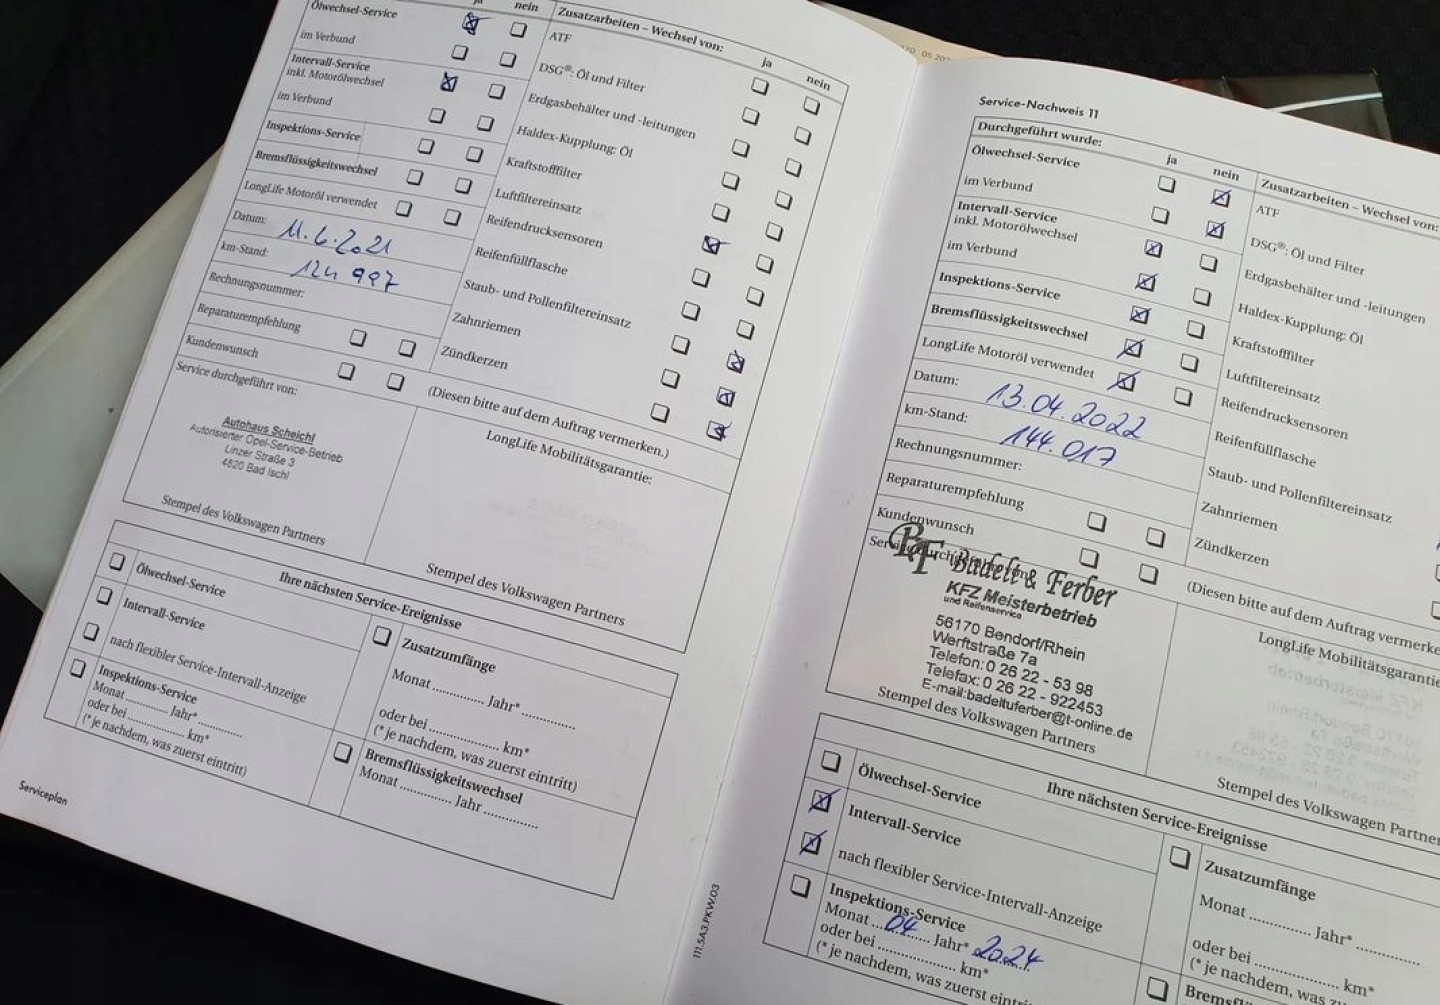 ja nein
Ölwechsel-Service
im Verbund
Intervall-Service
inkl. Motorölwechsel
im Verbund
Inspektions-Service
Bremsflüssigkeitswechsel
LongLife Motoröl verwendet
Datum: 11.6.2021
km-Stand: 124 997
Rechnungsnummer:
Reparaturempfehlung
Kundenwunsch
Service durchgeführt von:
Autohaus Scheichl
Autorisierter Opel-Service-Betrieb
Linzer Straße 3
4820 Bad Ischl
Stempel des Volkswagen Partners
Zusatzarbeiten – Wechsel von:
ja nein
ATF
DSG®: Öl und Filter
Erdgasbehälter und -leitungen
Haldex-Kupplung: Öl
Kraftstofffilter
Luftfiltereinsatz
Reifendrucksensoren
Reifenfüllflasche
Staub- und Pollenfiltereinsatz
Zahnriemen
Zündkerzen
(Diesen bitte auf dem Auftrag vermerken.)
LongLife Mobilitätsgarantie:
Stempel des Volkswagen Partners
Ihre nächsten Service-Ereignisse
Ölwechsel-Service
Intervall-Service
nach flexibler Service-Intervall-Anzeige
Inspektions-Service
Monat ............ Jahr* ............
oder bei .................. km*
(* je nachdem, was zuerst eintritt)
Zusatzumfänge
Monat ............. Jahr* ..............
oder bei .................. km*
(* je nachdem, was zuerst eintritt)
Bremsflüssigkeitswechsel
Monat ............. Jahr ..............
Serviceplan
Service-Nachweis 11
Durchgeführt wurde:
ja nein
Ölwechsel-Service
im Verbund
Intervall-Service
inkl. Motorölwechsel
im Verbund
Inspektions-Service
Bremsflüssigkeitswechsel
LongLife Motoröl verwendet
Datum: 13.04.2022
km-Stand: 144.017
Rechnungsnummer:
Reparaturempfehlung
Kundenwunsch
BF Badelt & Ferber
KFZ Meisterbetrieb
und Reifenservice
56170 Bendorf/Rhein
Werftstraße 7a
Telefon: 0 26 22 - 53 98
Telefax: 0 26 22 - 922453
E-mail:badeltuferber@t-online.de
Stempel des Volkswagen Partners
Zusatzarbeiten – Wechsel von:
ATF
DSG®: Öl und Filter
Erdgasbehälter und -leitungen
Haldex-Kupplung: Öl
Kraftstofffilter
Luftfiltereinsatz
Reifendrucksensoren
Reifenfüllflasche
Staub- und Pollenfiltereinsatz
Zahnriemen
Zündkerzen
(Diesen bitte auf dem Auftrag vermerke
LongLife Mobilitätsgarantie
Stempel des Volkswagen Partner
Ihre nächsten Service-Ereignisse
Ölwechsel-Service
Intervall-Service
nach flexibler Service-Intervall-Anzeige
Inspektions-Service
Monat ... 04 ... Jahr* 2024
oder bei .................. km*
(* je nachdem, was zuerst eintritt)
Zusatzumfänge
Monat ............. Jahr* ..............
oder bei .................. km*
(* je nachdem, was zuerst
111.5A3.PKW.03